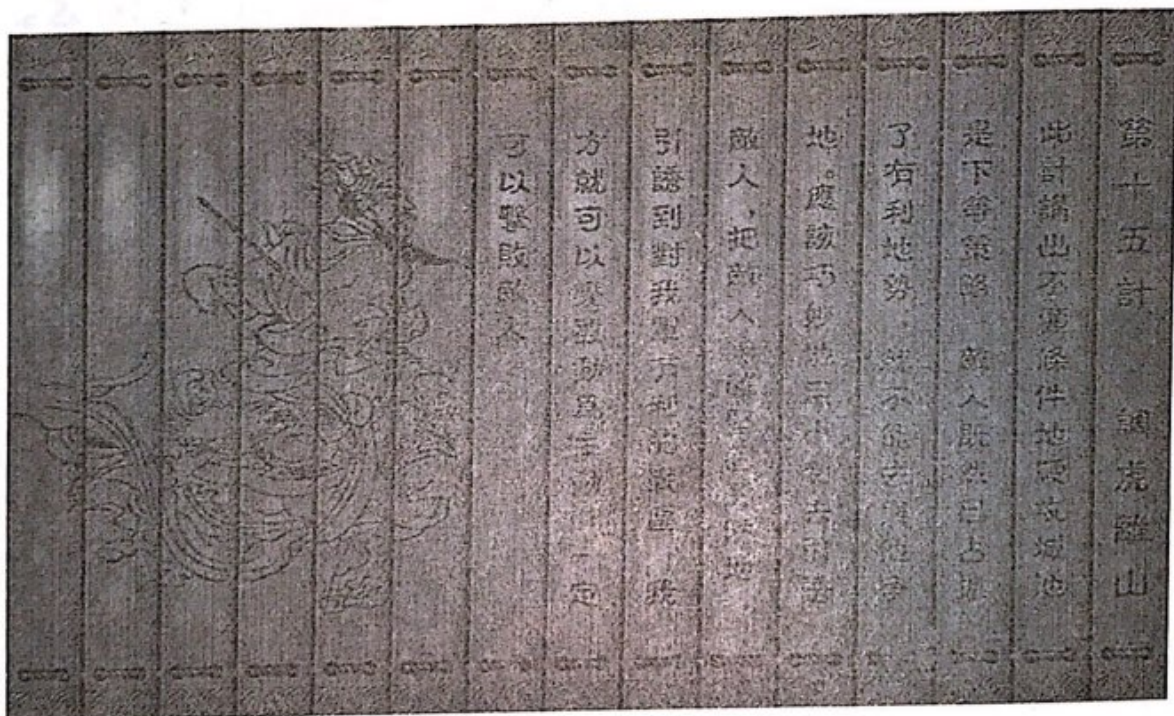 第十五計 調虎離山
此計講出不顧條件地硬攻城池
是下等策略 敵人既然已占據
了有利地勢 就不能去與他爭
地。應該巧妙地用小利去引誘
敵人,把敵人 地
引誘到對我軍有利的戰區 我
方就可以變被動為主動 一定
可以擊敗敵人